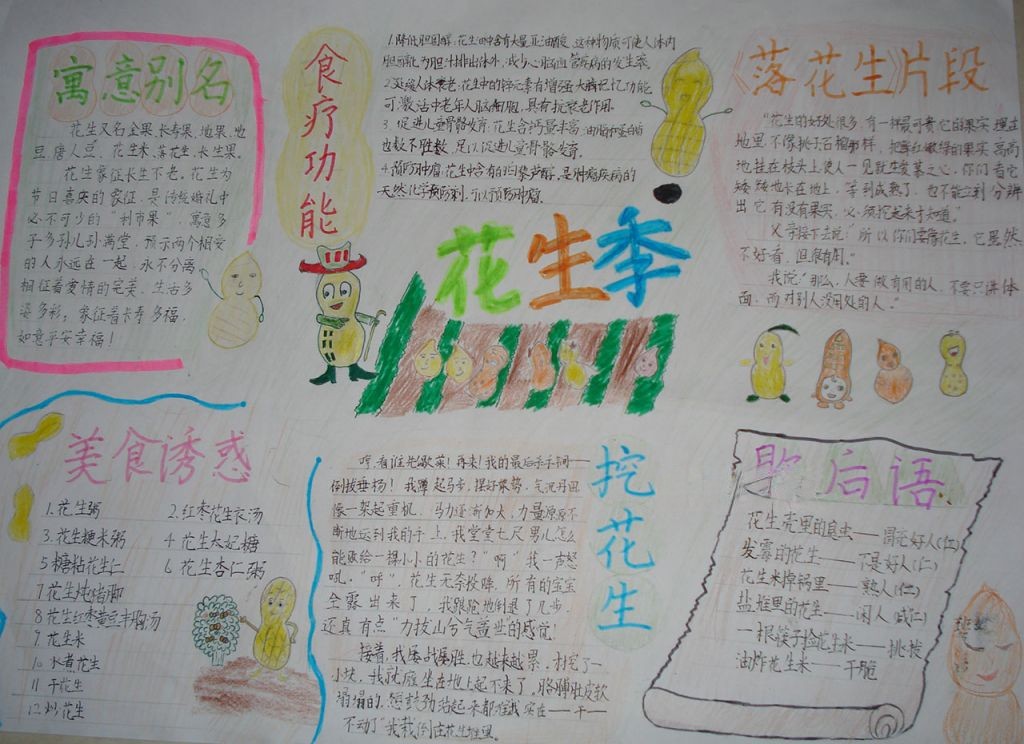 寓意别名
花生又名金果、长寿果、地果、地
豆、唐人豆、花生米、落花生、长生果。
花生象征长生不老。花生为
节日喜庆的象征,是传统婚礼中
必不可少的"利市果",寓意多
子多孙儿孙满堂,预示两个相爱
的人永远在一起,永不分离
相征着爱情的完美、生活多
姿多彩;象征着长寿多福,
如意平安幸福!
食疗功能
1.降低胆固醇,花生中含有大量亚油酸,这种物质可使人体内
胆固醇为胆汁排出体外,减少心脑血管疾病的发生率
2.延缓人体衰老,花生中的锌元素有增强大脑记忆功能
可激活中老年人脑细胞,具有抗衰老作用.
3.促进儿童骨骼发育,花生含钙量丰富,
足以促进儿童骨骼发育.
4.预防肿瘤,花生中含有的白藜芦醇,是肿瘤疾病的
天然化学预防剂,可以预防肿瘤.
花生季
《落花生》片段
"花生的好处很多,有一样最可贵:它的果实埋在
地里,不像桃子石榴那样,把鲜红嫩绿的果实高高
地挂在枝头上,使人一见就生爱慕之心。你们看它
矮矮地长在地上,等到成熟了,也不能立刻分辨
出它有没有果实,必须挖起来才知道。"
父亲接下去说:"所以你们要像花生,它虽然
不好看,但很有用。"
我说:"那么,人要做有用的人,不要只讲体
面,而对别人没用处的人。"
美食诱惑
1.花生粥
2.红枣花生衣汤
3.花生粳米粥
4.花生太妃糖
5.糖粘花生仁
6.花生杏仁粥
7.花生炖猪脚
8.花生红枣黄豆
9.花生米
10.水煮花生
11.干花生
12.炒花生
挖花生
哼,看谁先歇菜!再来!我的最后杀手锏——
倒拔垂杨!我蹲起马步,摆好架势,气沉丹田
像一架起重机,马力逐渐加大,力量源源不
断地运到我的手上,我堂堂七尺男儿怎么
能败给一棵小小的花生?"啊"我一声怒
吼,"呼",花生无奈投降,所有的宝宝
全露出来了,我踉跄地倒退了几步,
还真有点"力拔山兮气盖世"的感觉!
接着,我屡战屡胜,也越来越累,才挖了一
小块,我就瘫坐在地上起不来了,胳膊肚皮软
塌塌的,想鼓劲站起来都难,我实在——干——
不动了,我栽倒在花生堆里。
歇后语
花生壳里的昆虫——园壳好人(仁)
发霉的花生——不是好人(仁)
花生米掉锅里——熟人(仁)
盐堆里的花生——闲人(咸仁)
一根筷子捡花生米——挑拨
油炸花生米——干脆